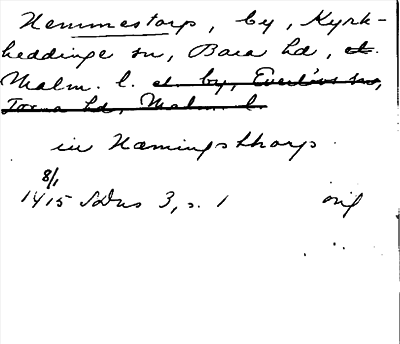 Hemmestorp, by, Kyrk-
heddinge sn, Bara hd, el.
Malm. l. el. by, Everlövs sn,
Torna hd, Malm. l.
in Hamingsthorp
8/1
1415 SDns 3, s. 1 orig